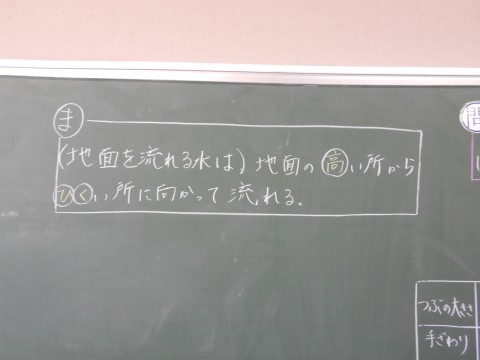 ま
(地面を流れる水は)地面の高い所から
ひくい所に向かって流れる。
問
つぶの大きさ
手ざわり